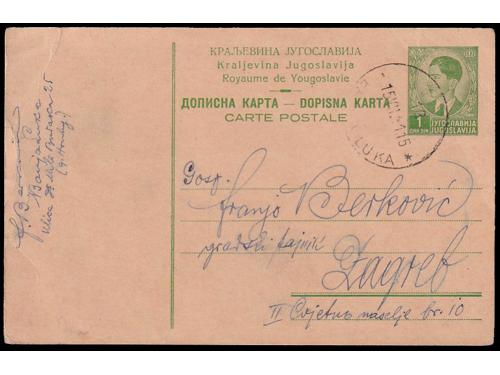 КРАЉЕВИНА ЈУГОСЛАВИЈА
Kraljevina Jugoslavija
Royaume de Yougoslavie
ДОПИСНА КАРТА — DOPISNA KARTA
CARTE POSTALE
1
ДИН DIN
ЈУГОСЛАВИЈА
JUGOSLAVIJA
LUKA
Gosp.
Franjo Berković
gradski tajnik
Zagreb
II Cvjetno naselje br. 10
Banjaluka
ulica
25